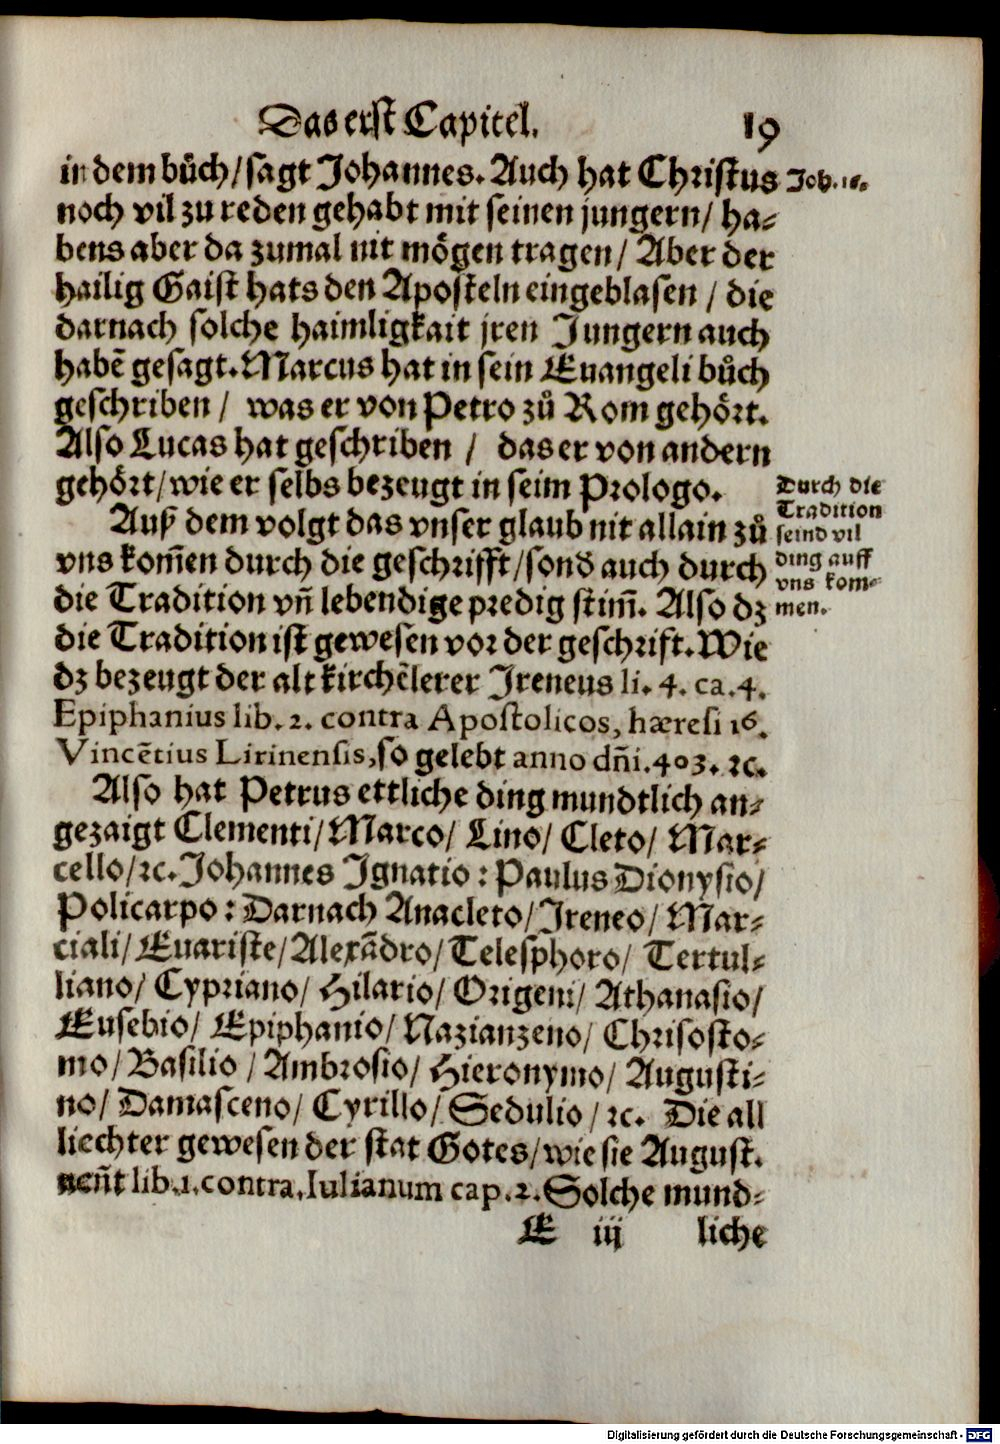 Das erst Capitel. 19
in dem bůch/sagt Johannes. Auch hat Christus
Joh. 16.
noch vil zu reden gehabt mit seinen jungern/ ha-
bens aber da zumal nit mögen tragen/ Aber der
hailig Gaist hats den Aposteln eingeblasen / die
darnach solche haimligkait jren Jungern auch
habẽ gesagt. Marcus hat in sein Euangeli bůch
geschriben / was er von Petro zů Rom gehört.
Also Lucas hat geschriben / das er von andern
gehört/wie er selbs bezeugt in seim Prologo.
Durch die
Tradition
seind vil
ding auff
vns kom-
men.
Auß dem volgt das vnser glaub nit allain zů
vns kom̃en durch die geschrifft/sond̕ auch durch
die Tradition vñ lebendige predig stim̃. Also dz
die Tradition ist gewesen vor der geschrift. Wie
dz bezeugt der alt kirchẽlerer Jreneus li. 4. ca. 4.
Epiphanius lib. 2. contra Apostolicos, hæresi 16.
Vincẽtius Lirinensis, so gelebt anno dñi. 403. ꝛc.
Also hat Petrus ettliche ding mundtlich an-
gezaigt Clementi/ Marco/ Lino/ Cleto/ Mar-
cello/ꝛc. Johannes Jgnatio: Paulus Dionysio/
Policarpo: Darnach Anacleto/ Jreneo/ Mar-
ciali/ Euariste/ Alexãdro/ Telesphoro/ Tertul-
liano/ Cypriano/ Hilario/ Origeni/ Athanasio/
Eusebio/ Epiphanio/ Nazianzeno/ Chrisosto-
mo/ Basilio / Ambrosio/ Hieronymo/ Augusti-
no/ Damasceno/ Cyrillo/ Sedulio / ꝛc. Die all
liechter gewesen der stat Gotes/ wie sie August.
neñt lib. 1. contra. Iulianum cap. 2. Solche mund-
E iij liche
Digitalisierung gefördert durch die Deutsche Forschungsgemeinschaft - DFG